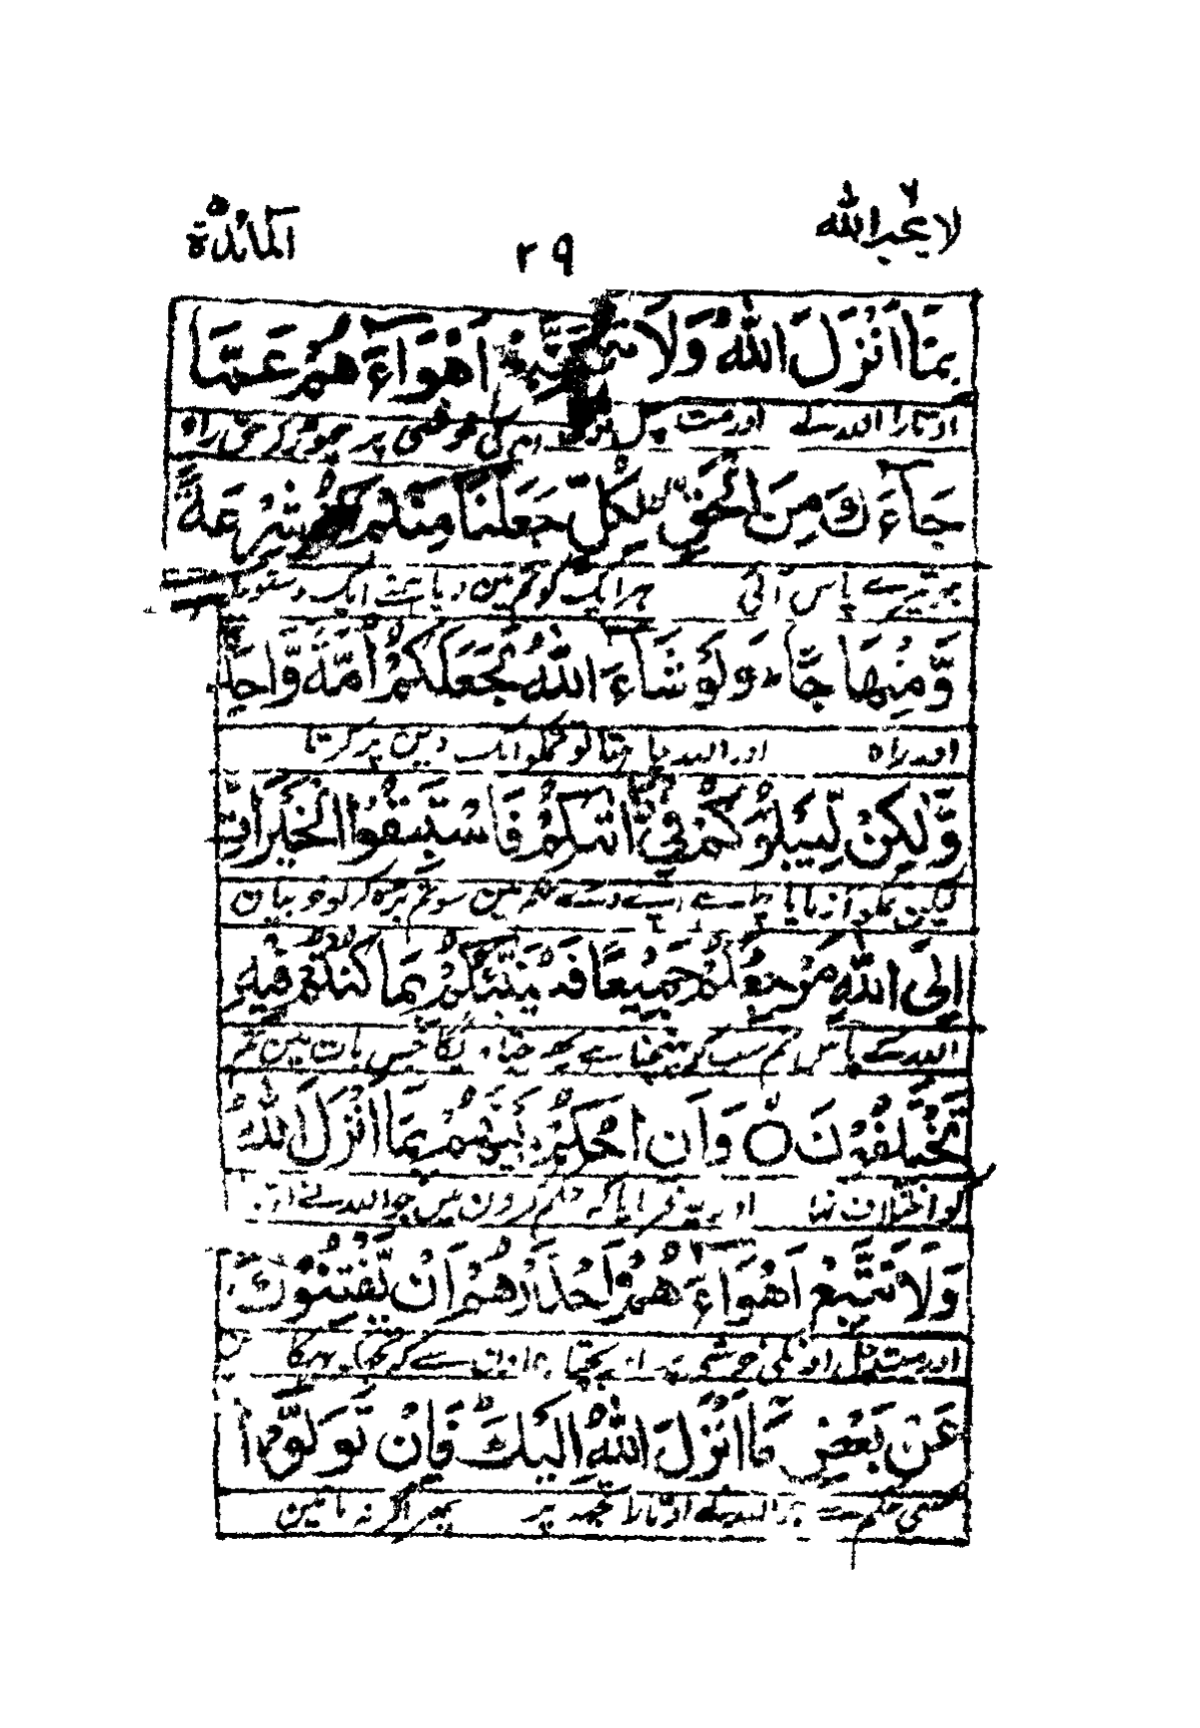 لا يحب الله ٢٩ المائدة
بِمَا اَنْزَلَ اللّٰهُ وَلَا تَتَّبِعْ اَهْوَآءَهُمْ عَمَّا
اوتارا اللہ نے اور مت چل اون کی خوشی پر چھوڑ کر حق راہ
جَآءَكَ مِنَ الْحَقِّ لِكُلٍّ جَعَلْنَا مِنْكُمْ شِرْعَةً
جو تیرے پاس آئی ہر ایک کو تم مین دیا ہمنے ایک دستور
وَّمِنْهَاجًا وَلَوْ شَآءَ اللّٰهُ لَجَعَلَكُمْ اُمَّةً وَّاحِدَ
اور راہ اور اللہ چاہتا تو تمکو ایک دین پر کرتا
وَّلٰكِنْ لِّيَبْلُوَكُمْ فِيْ مَا اٰتٰىكُمْ فَاسْتَبِقُوا الْخَيْرَاتِ
لیکن تمکو آزمایا چاہے اپنے دئے حکم مین سو تم بڑہ کر لو خوبیان
اِلَى اللّٰهِ مَرْجِعُكُمْ جَمِيْعًا فَيُنَبِّئُكُمْ بِمَا كُنْتُمْ فِيْهِ
اللہ کے پاس تم سب کو پہنچنا ہے پھر جتاو یگا جس بات مین تم
تَخْتَلِفُوْنَ ○ وَاَنِ احْكُمْ بَيْنَهُمْ بِمَا اَنْزَلَ اللّٰهُ
کو اختلاف تہا اور یہ فرمایا کہ حکم کر اون مین جو اللہ نے اوتا
وَلَا تَتَّبِعْ اَهْوَآءَهُمْ وَاحْذَرْهُمْ اَنْ يَّفْتِنُوْكَ
اور مت چل اونکی خوشی پر اور بچتا رہ اون سے کہ تجکو بہکا
عَنْ بَعْضِ مَا اَنْزَلَ اللّٰهُ اِلَيْكَ فَاِنْ تَوَلَّوْا
کسی حکم سے جو اللہ نے اوتارا تجھ پر پھر اگر نہ مانین